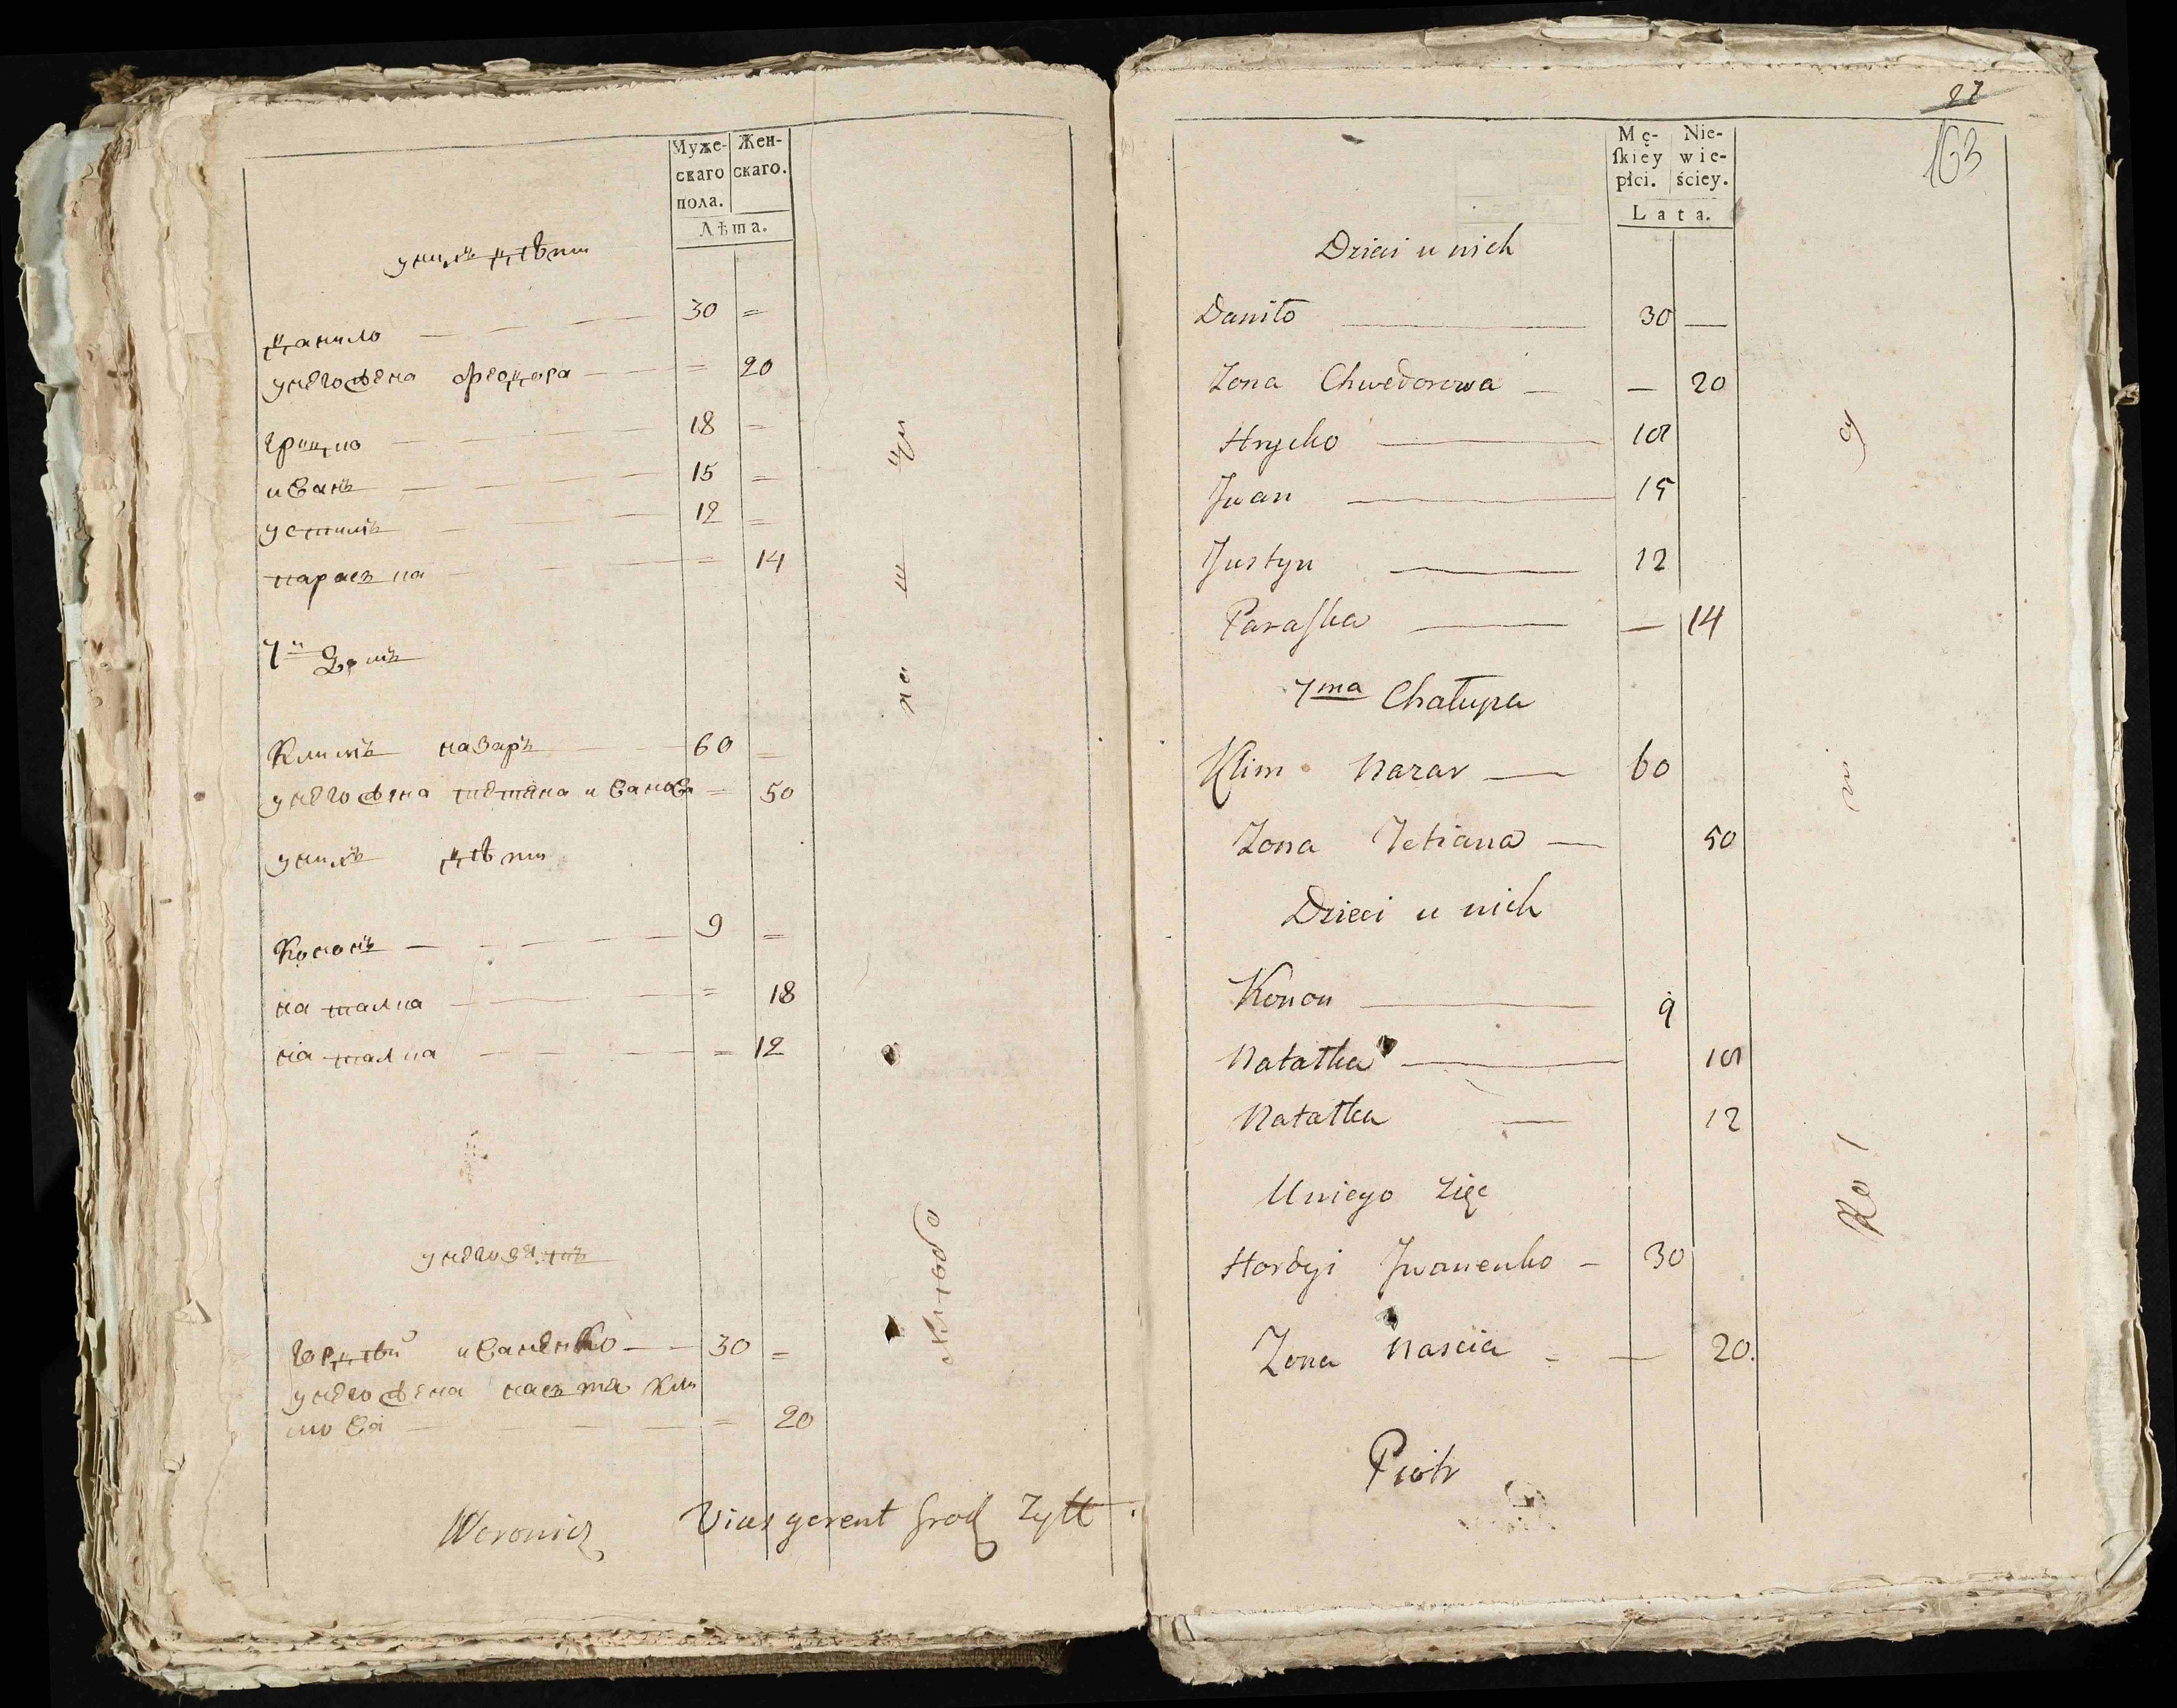 Муже-
скаго
пола.
Жен-
скаго.
Лѣта.
у нихъ дѣти
данило — — — 30 =
унего жена феодора — = 20
грицко — — — 18 =
иванъ — — — 15 =
устимъ — — — 12 =
параска — — — = 14
7й Домъ
Климъ назаръ — 60 =
унего жена тетяна иванова = 50
у нихъ дѣти
Кононъ — — — 9 =
наталка — — — = 18
наталка — — — = 12
унего зять
гордѣй иваненко — — 30 =
унего жена настя Кли
мова — — — = 20
Weronicz Vicesgerent Grodz Zytt
27
163
Mę-
ſkiey
płci.
Nie-
wie-
ściey.
Lata.
Dzieci u nich
Daniło — 30 —
Zona Chwedorowa — — 20
Hrycko — 18
Jwan — 15
Justyn — 12
Paraſka — — 14
7ma Chałupa
Klim Nazar — 60
Zona Tetiana — 50
Dzieci u nich
Konon — 9
Natałka — 18
Natałka — 12
U niego zięć
Hordyi Jwanenko — 30
Zona Nascia = — 20.
Piotr